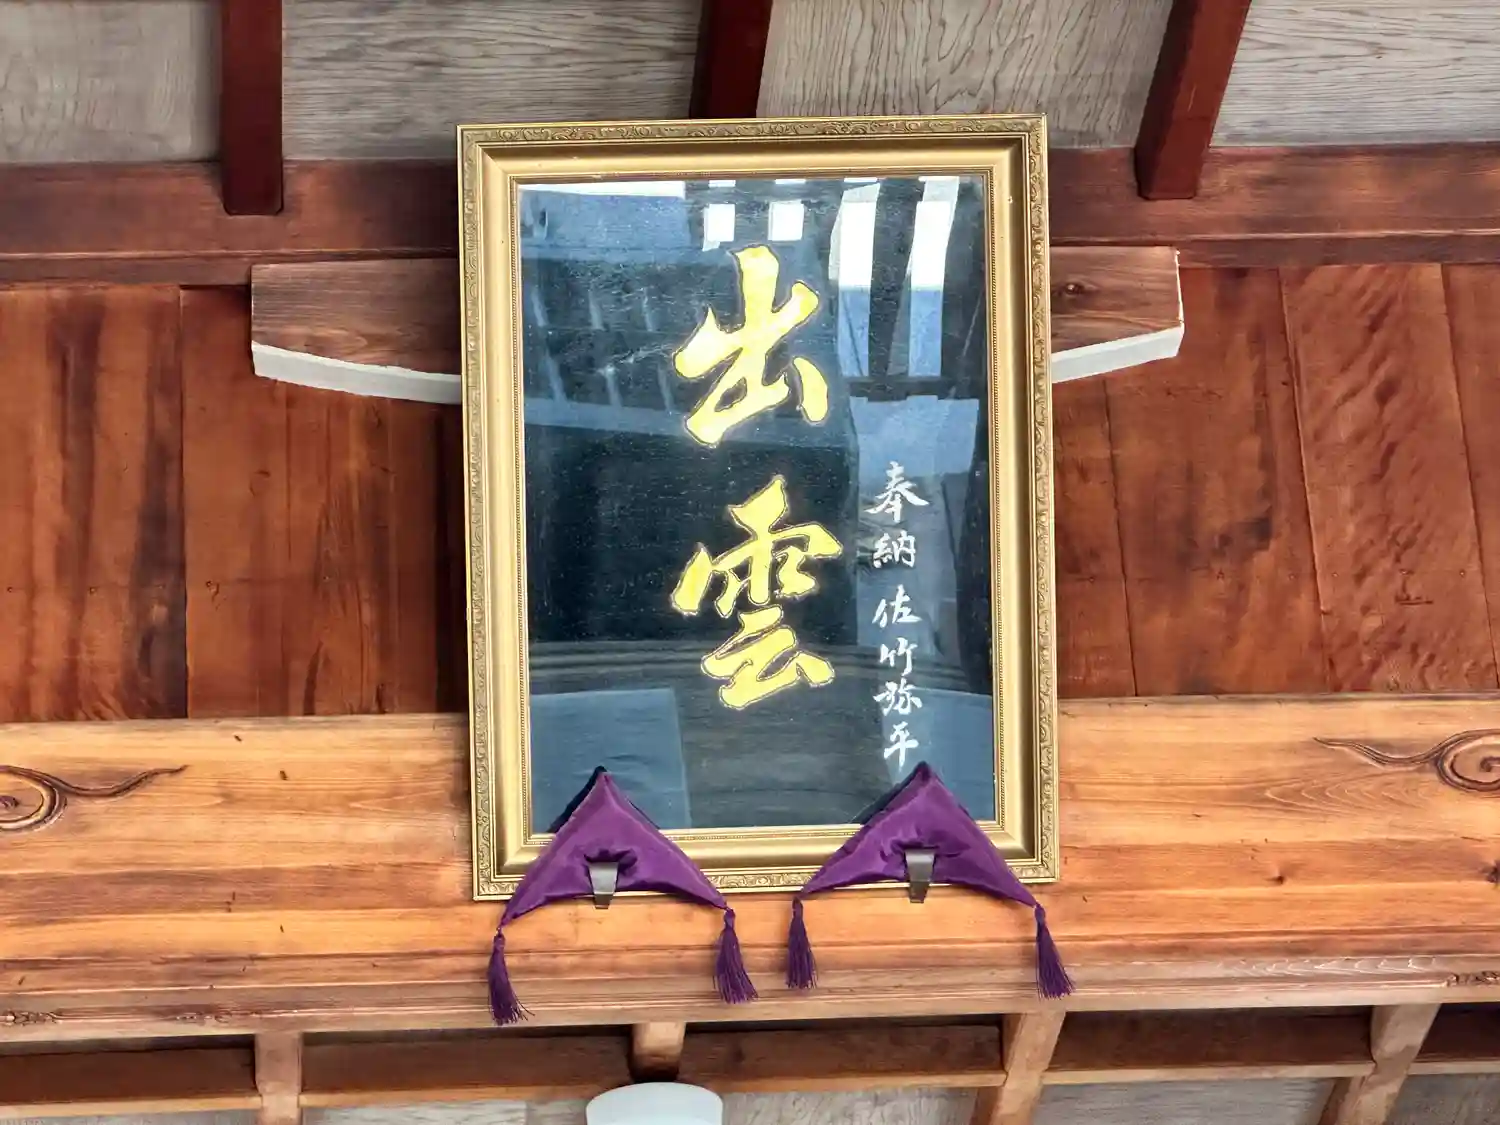 出雲
奉納 佐竹弥平